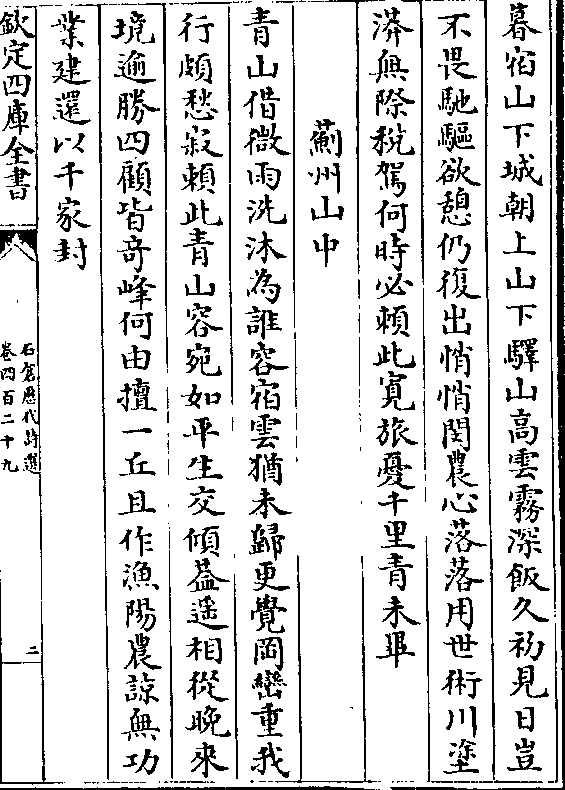 暮宿山下城朝上山下驛山高雲霧深飯久初見日豈
不畏馳驅欲憩仍復出悄悄閔農心落落用世術川塗
漭無際稅駕何時必賴此寬旅憂千里青未畢
薊州山中
青山借微雨洗沐為誰容宿雲猶未歸更覺岡巒重我
行頗愁寂賴此青山容宛如平生交傾葢遥相從晚來
境逾勝四顧皆竒峰何由擅一丘且作漁陽農諒無功
業建還以千家封
欽定四庫全書
石倉歷代詩選
卷四百二十九
二